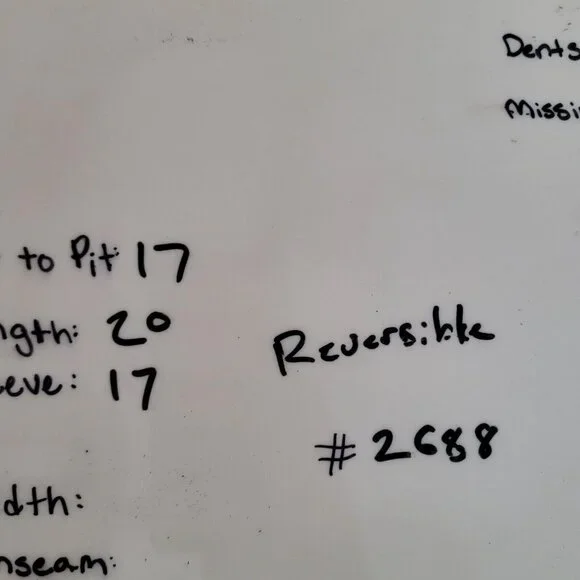 Dents
Missi
to Pit: 17
ngth: 20
eeve: 17
Reversible
#2688
dth:
nseam: